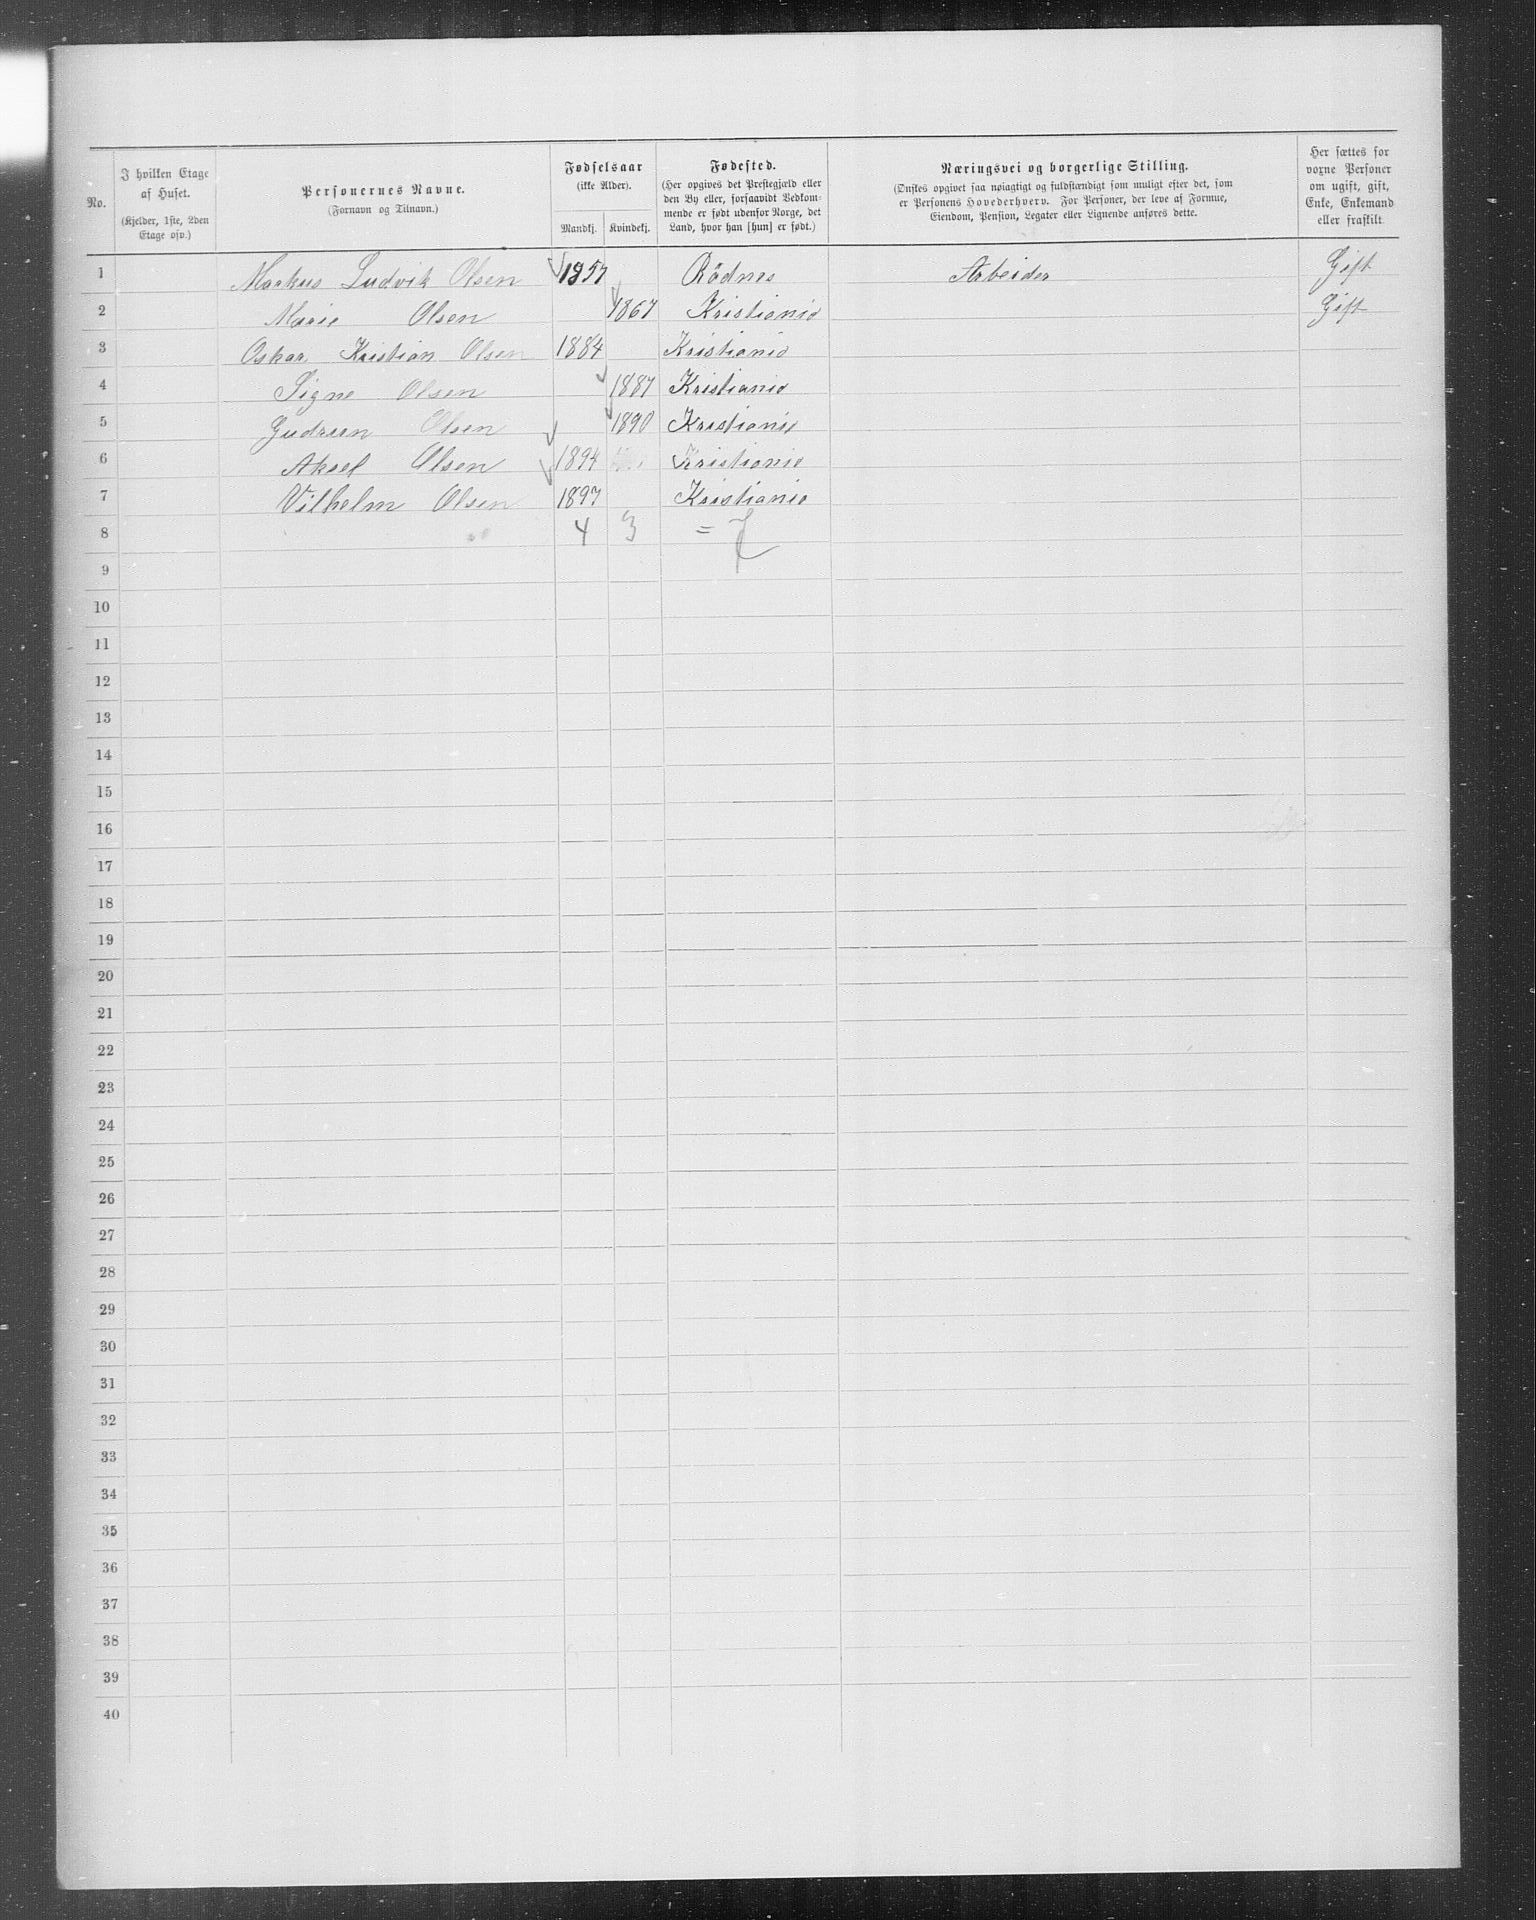 No.
I hvilken Etage af Huset.
(Kjelder, 1ste, 2den Etage osv.)
Personernes Navne.
(Fornavn og Tilnavn.)
Fødselsaar
(ikke Alder).
Mandkj. Kvindekj.
Fødested.
(Her opgives det Prestegjæld eller
den By eller, forsaavidt Vedkom-
mende er født udenfor Norge, det
Land, hvor han [hun] er født.)
Næringsvei og borgerlige Stilling.
(Ønskes opgivet saa nøiagtigt og fuldstændigt som muligt efter det, som
er Personens Hovederhverv. For Personer, der leve af Formue,
Eiendom, Pension, Legater eller Lignende anføres dette.
Her sættes for
voxne Personer
om ugift, gift,
Enke, Enkemand
eller fraskilt.
1 Markus Ludvik Olsen 1857 Rödnes Arbeider Gift
2 Marie Olsen 1867 Kristiania Gift
3 Oskar Kristian Olsen 1884 Kristiania
4 Signe Olsen 1887 Kristiania
5 Gudrun Olsen 1890 Kristiania
6 Aksel Olsen 1894 Kristiania
7 Vilhelm Olsen 1897 Kristiania
8 4 3 = 7
9
10
11
12
13
14
15
16
17
18
19
20
21
22
23
24
25
26
27
28
29
30
31
32
33
34
35
36
37
38
39
40